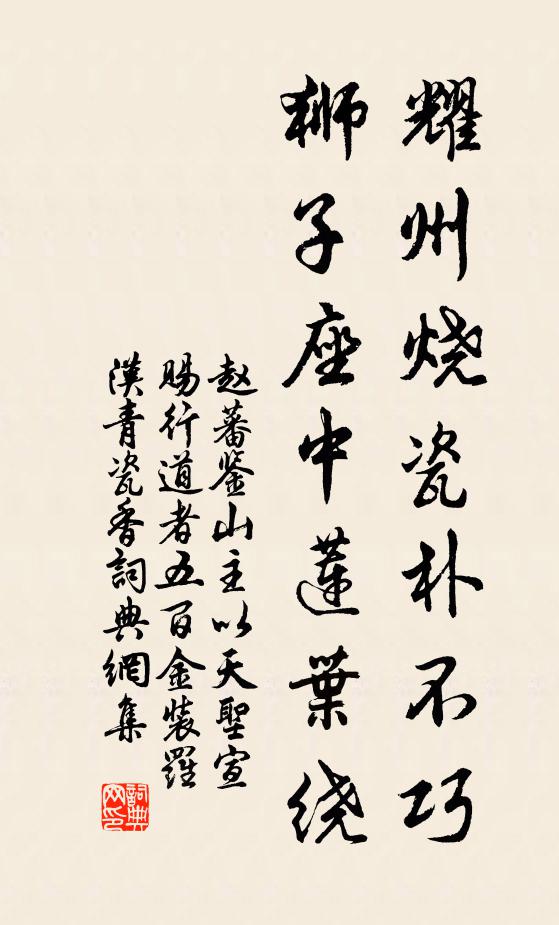 耀州烧瓷朴不巧
狮子座中莲葉绕
赵蕃鉴山主以天聖宣
赐行道者五百金装羅
漢青瓷香詞典網集
詞典網印